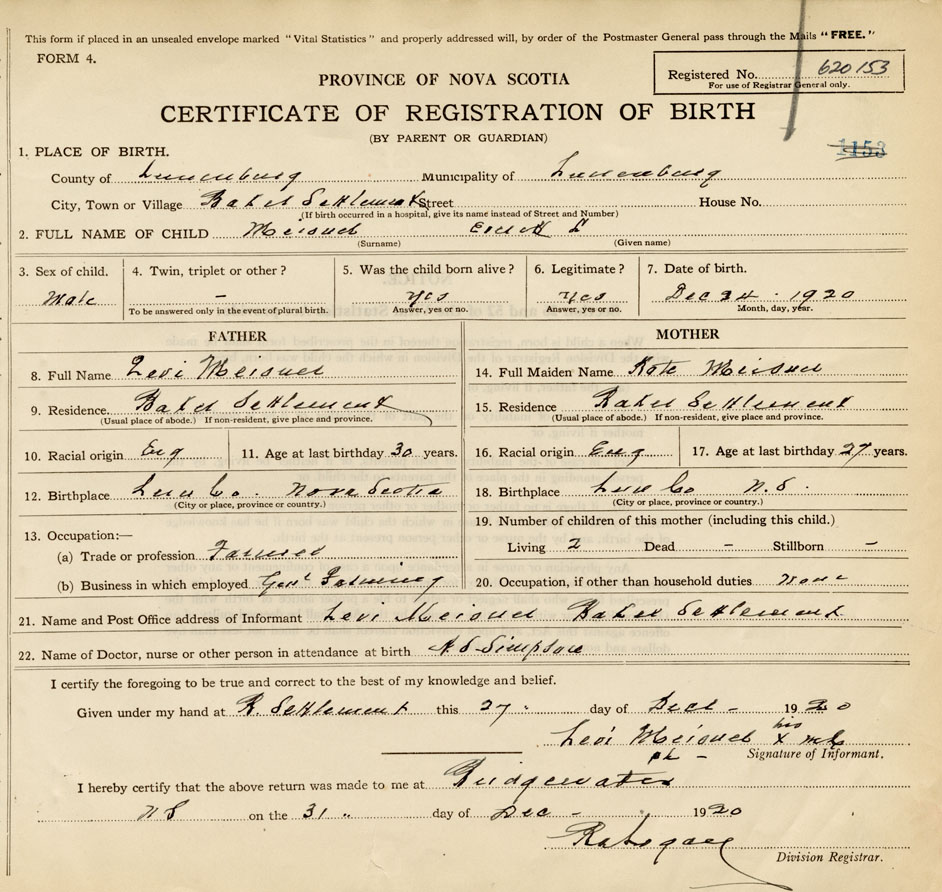 This form if placed in an unsealed envelope marked "Vital Statistics" and properly addressed will, by order of the Postmaster General pass through the Mails "FREE."
FORM 4.
PROVINCE OF NOVA SCOTIA
Registered No. 620153
For use of Registrar General only.
CERTIFICATE OF REGISTRATION OF BIRTH
(BY PARENT OR GUARDIAN)
1153
1. PLACE OF BIRTH.
County of Lunenburg Municipality of Lunenburg
City, Town or Village Baker Settlement Street House No.
(If birth occurred in a hospital, give its name instead of Street and Number)
2. FULL NAME OF CHILD Meisner L
(Surname) (Given name)
3. Sex of child. 4. Twin, triplet or other? 5. Was the child born alive? 6. Legitimate? 7. Date of birth.
Male – Yes Yes Dec 24 . 1920
To be answered only in the event of plural birth. Answer, yes or no. Answer, yes or no. Month, day, year.
FATHER MOTHER
8. Full Name Levi Meisner 14. Full Maiden Name Kate Meisner
9. Residence. Baker Settlement 15. Residence Baker Settlement
(Usual place of abode.) If non-resident, give place and province. (Usual place of abode.) If non-resident, give place and province.
10. Racial origin Eng 11. Age at last birthday 30 years. 16. Racial origin Eng 17. Age at last birthday 27 years.
12. Birthplace Lun Co. Nova Scotia 18. Birthplace Lun Co N.S.
(City or place, province or country.) (City or place, province or country.)
13. Occupation:— 19. Number of children of this mother (including this child.)
(a) Trade or profession Farmer Living 2 Dead – Stillborn –
(b) Business in which employed Genl Farming 20. Occupation, if other than household duties None
21. Name and Post Office address of Informant Levi Meisner Baker Settlement
22. Name of Doctor, nurse or other person in attendance at birth Simpson
I certify the foregoing to be true and correct to the best of my knowledge and belief.
Given under my hand at B. Settlement this 27 " day of Dec 1920
Levi Meisner his x mk
Signature of Informant.
I hereby certify that the above return was made to me at Bridgewater
NS on the 31 " day of Dec 1920
Division Registrar.